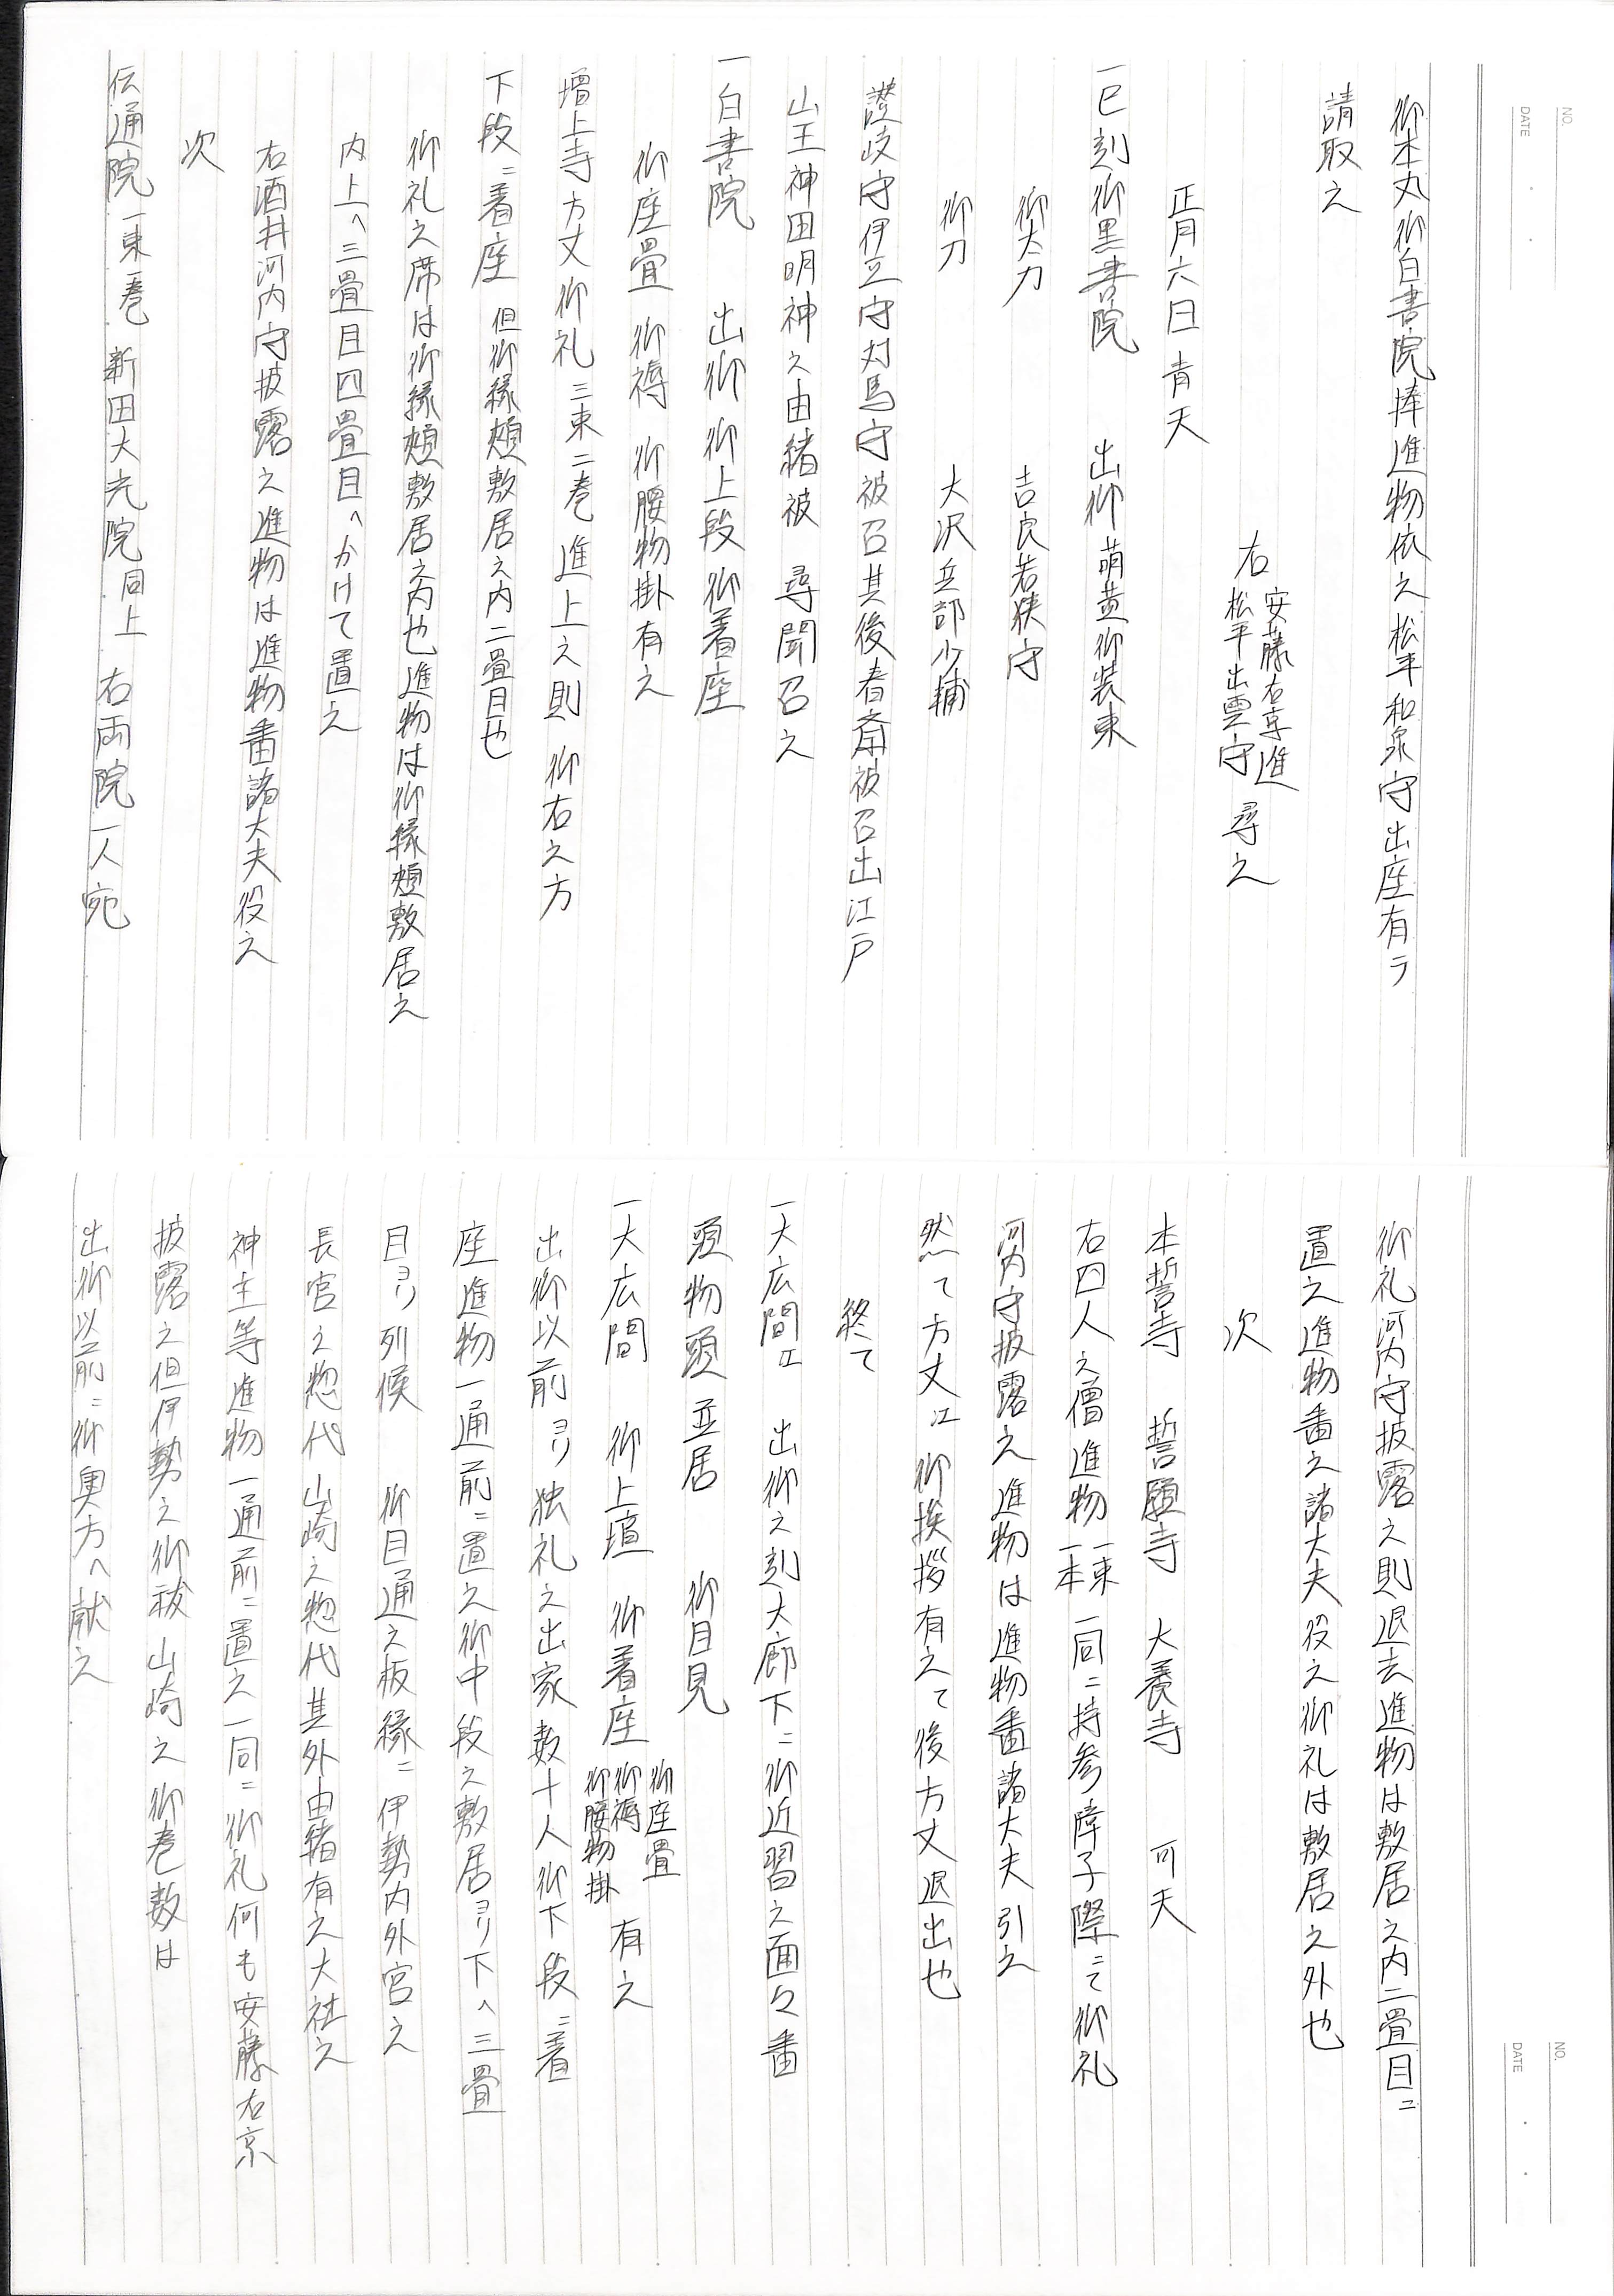 NO.
DATE
御本丸御白書院捧進物依之松平和泉守出座有テ
請取之
右 安藤右京進 松平出雲守 尋之
正月六日 青天
一巳刻御黒書院 出御 萌黄御装束
御太刀 吉良若狭守
御刀 大沢兵部少輔
讃岐守伊豆守対馬守被召其後春斎被召出江戸
山王神田明神之由緒被 尋聞召之
一白書院 出御 御上段 御着座
御座畳 御褥 御腰物掛有之
増上寺方丈御礼 三束二巻 進上之則 御右之方
下段ニ着座 但御縁頬敷居之内二畳目也
御礼之席は御縁頬敷居之内也進物は御縁頬敷居之
内上ヘ三畳目四畳目ヘかけて置之
右酒井河内守披露之進物は進物番諸大夫役之
次
伝通院 一束一巻 新田大光院 同上 右両院一人宛
NO.
DATE
御礼河内守披露之則退去進物は敷居之内二畳目ニ
置之進物番之諸大夫役之御礼は敷居之外也
次
本誓寺 誓願寺 大養寺 可天
右四人之僧進物 一束一本 一同ニ持参障子際ニて御礼
河内守披露之進物は進物番諸大夫引之
然て方丈江 御挨拶有之て後方丈退出也
終て
一大広間江 出御之刻大廊下ニ御近習之面々番
頭物頭並居 御目見
一大広間 御上壇 御着座 御座畳 御褥 御腰物掛 有之
出御以前ヨリ独礼之出家数十人御下段ニ着
座進物一通前ニ置之御中段之敷居ヨリ下ヘ三畳
目ヨリ列候 御目通之板縁ニ伊勢内外宮之
長官之惣代 山崎之惣代其外由緒有之大社之
神主等進物一通前ニ置之一同ニ御礼何も安藤右京
披露之但伊勢之御祓 山崎之御巻数は
出御以前ニ御奥方ヘ献之